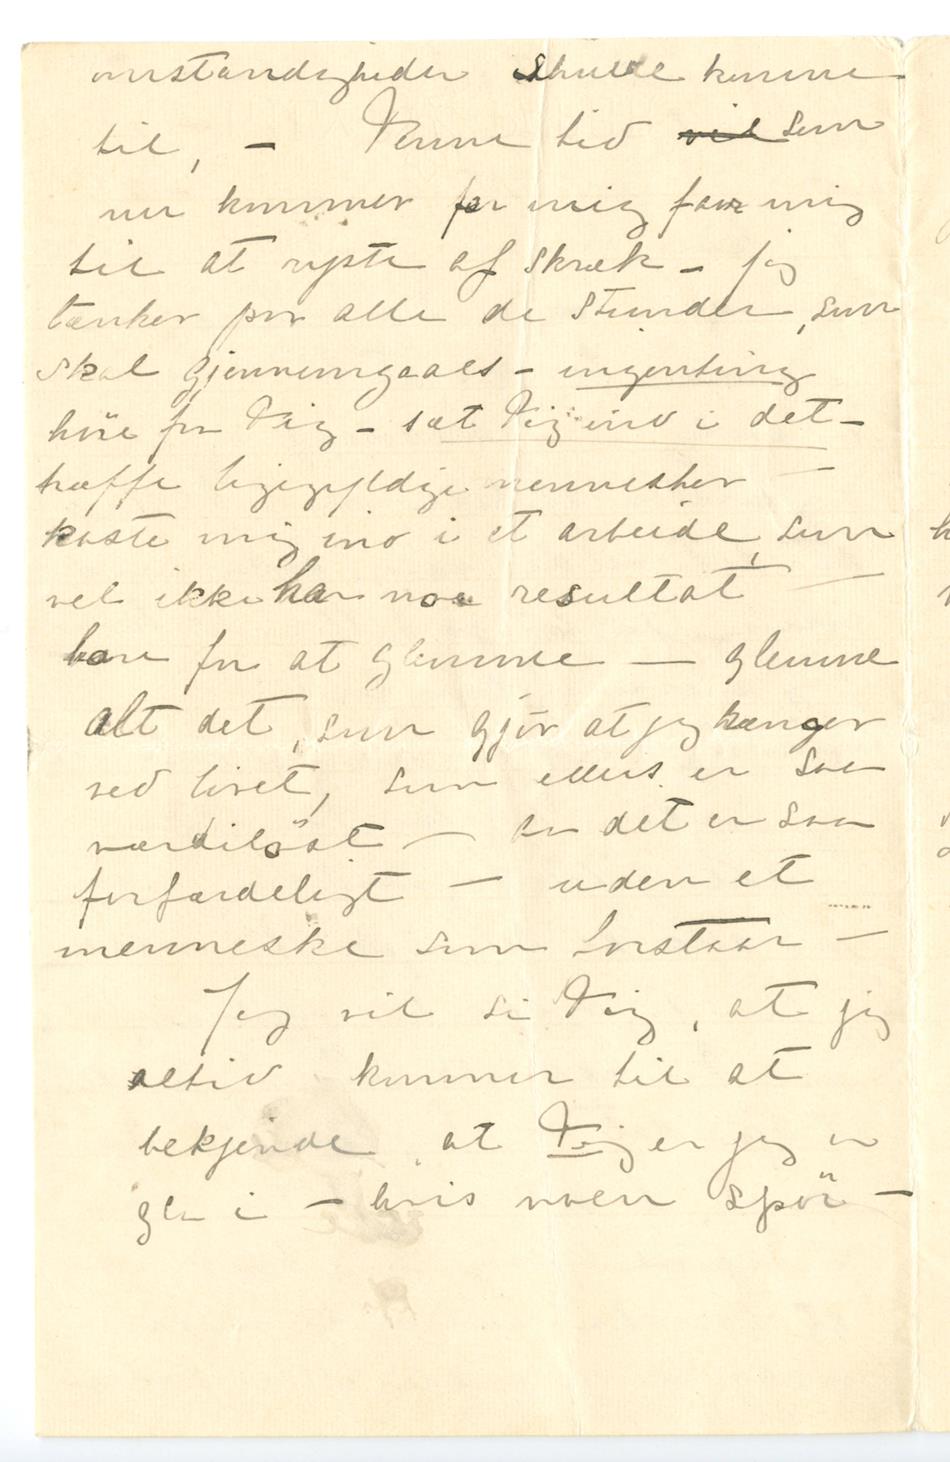 omstændigheder skulde kunne
til, – Denne tid ~~vil~~ som
nu kommer for mig faar mig
til at ryste af skræk – jeg
tænker paa alle de stunder, som
skal gjennemgaaes – ingenting
høre fra Dig – sæt Dig ind i det –
træffe ligegyldige mennesker –
kaste mig ind i et arbeide, som
vel ikke har noe resultat –
bare for at glemme – glemme
alt det, som gjør at jeg hænger
ved livet, som ellers er saa
værdiløst – Aa det er saa
forfærdeligt – uden et
menneske som forstaar –
Jeg vil si Dig, at jeg
altid kommer til at
bekjende at Dig er jeg er
gla i – hvis noen spør –